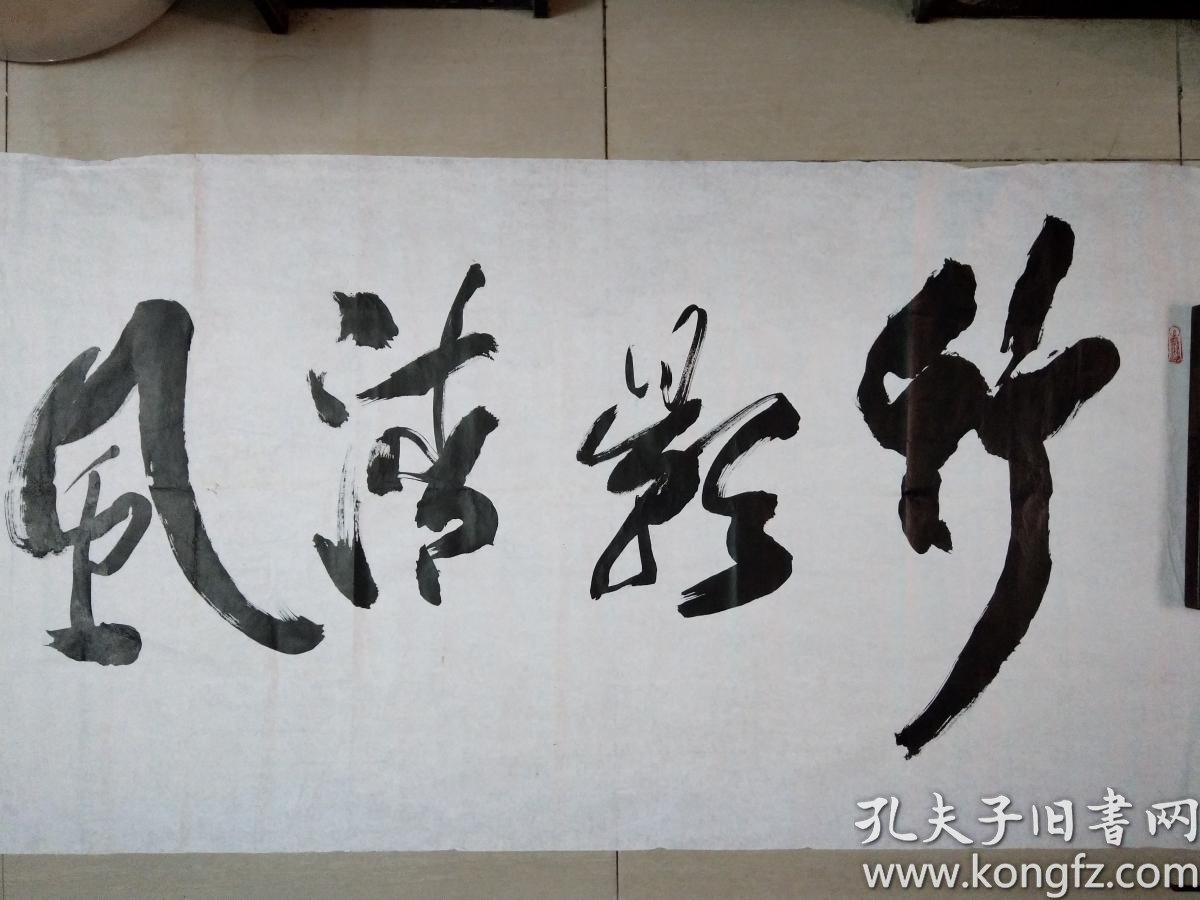 竹影清风
孔夫子旧書网
www.kongfz.com